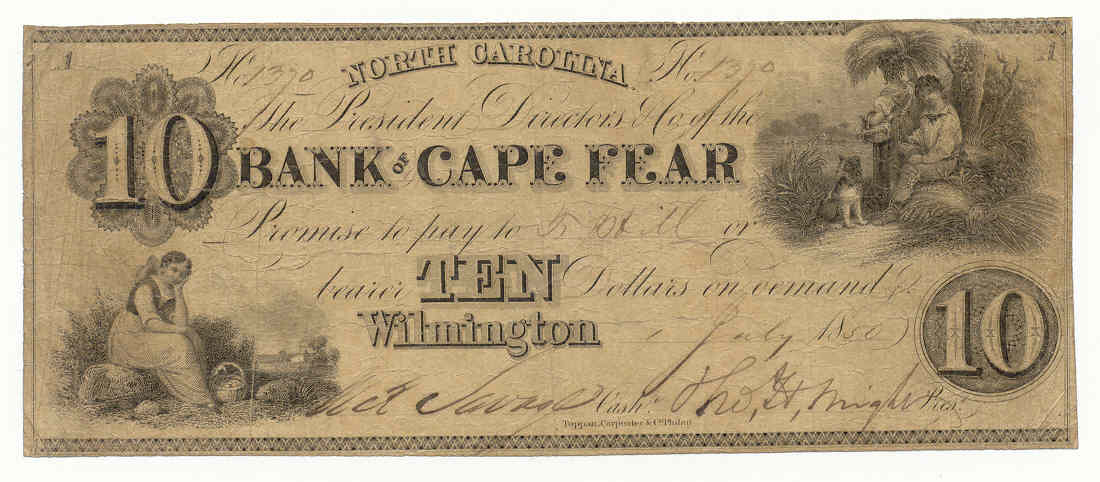 1 No. 1370 NORTH CAROLINA No. 1370 1
The President Directors & Co. of the
10 BANK OF CAPE FEAR
Promise to pay to or
bearer TEN Dollars on demand
Wilmington 1 July 10
Savage Cash. Tho, H, Wright Pres.
Toppan, Carpenter & Co. Phila